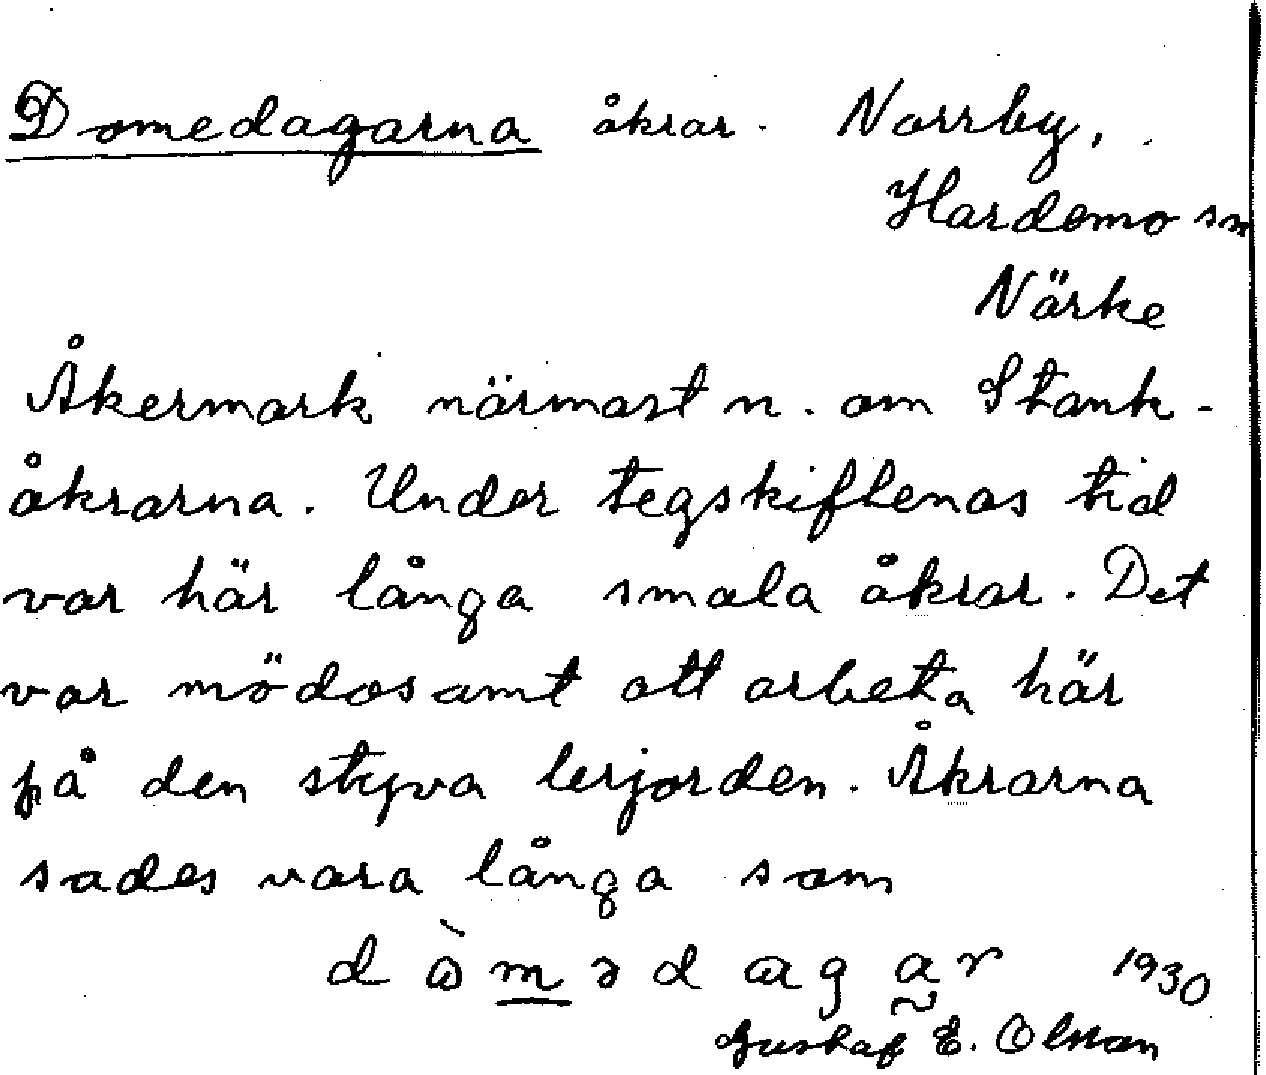 Domedagarna åkrar. Norrby,
Hardemo sn
Närke
Åkermark närmast n. om Stank-
åkrarna. Under tegskiftenas tid
var här långa smala åkrar. Det
var mödosamt att arbeta här
på den styva lerjorden. Åkrarna
sades vara långa som
dòmədagar 1930
Gustaf E. Olsson